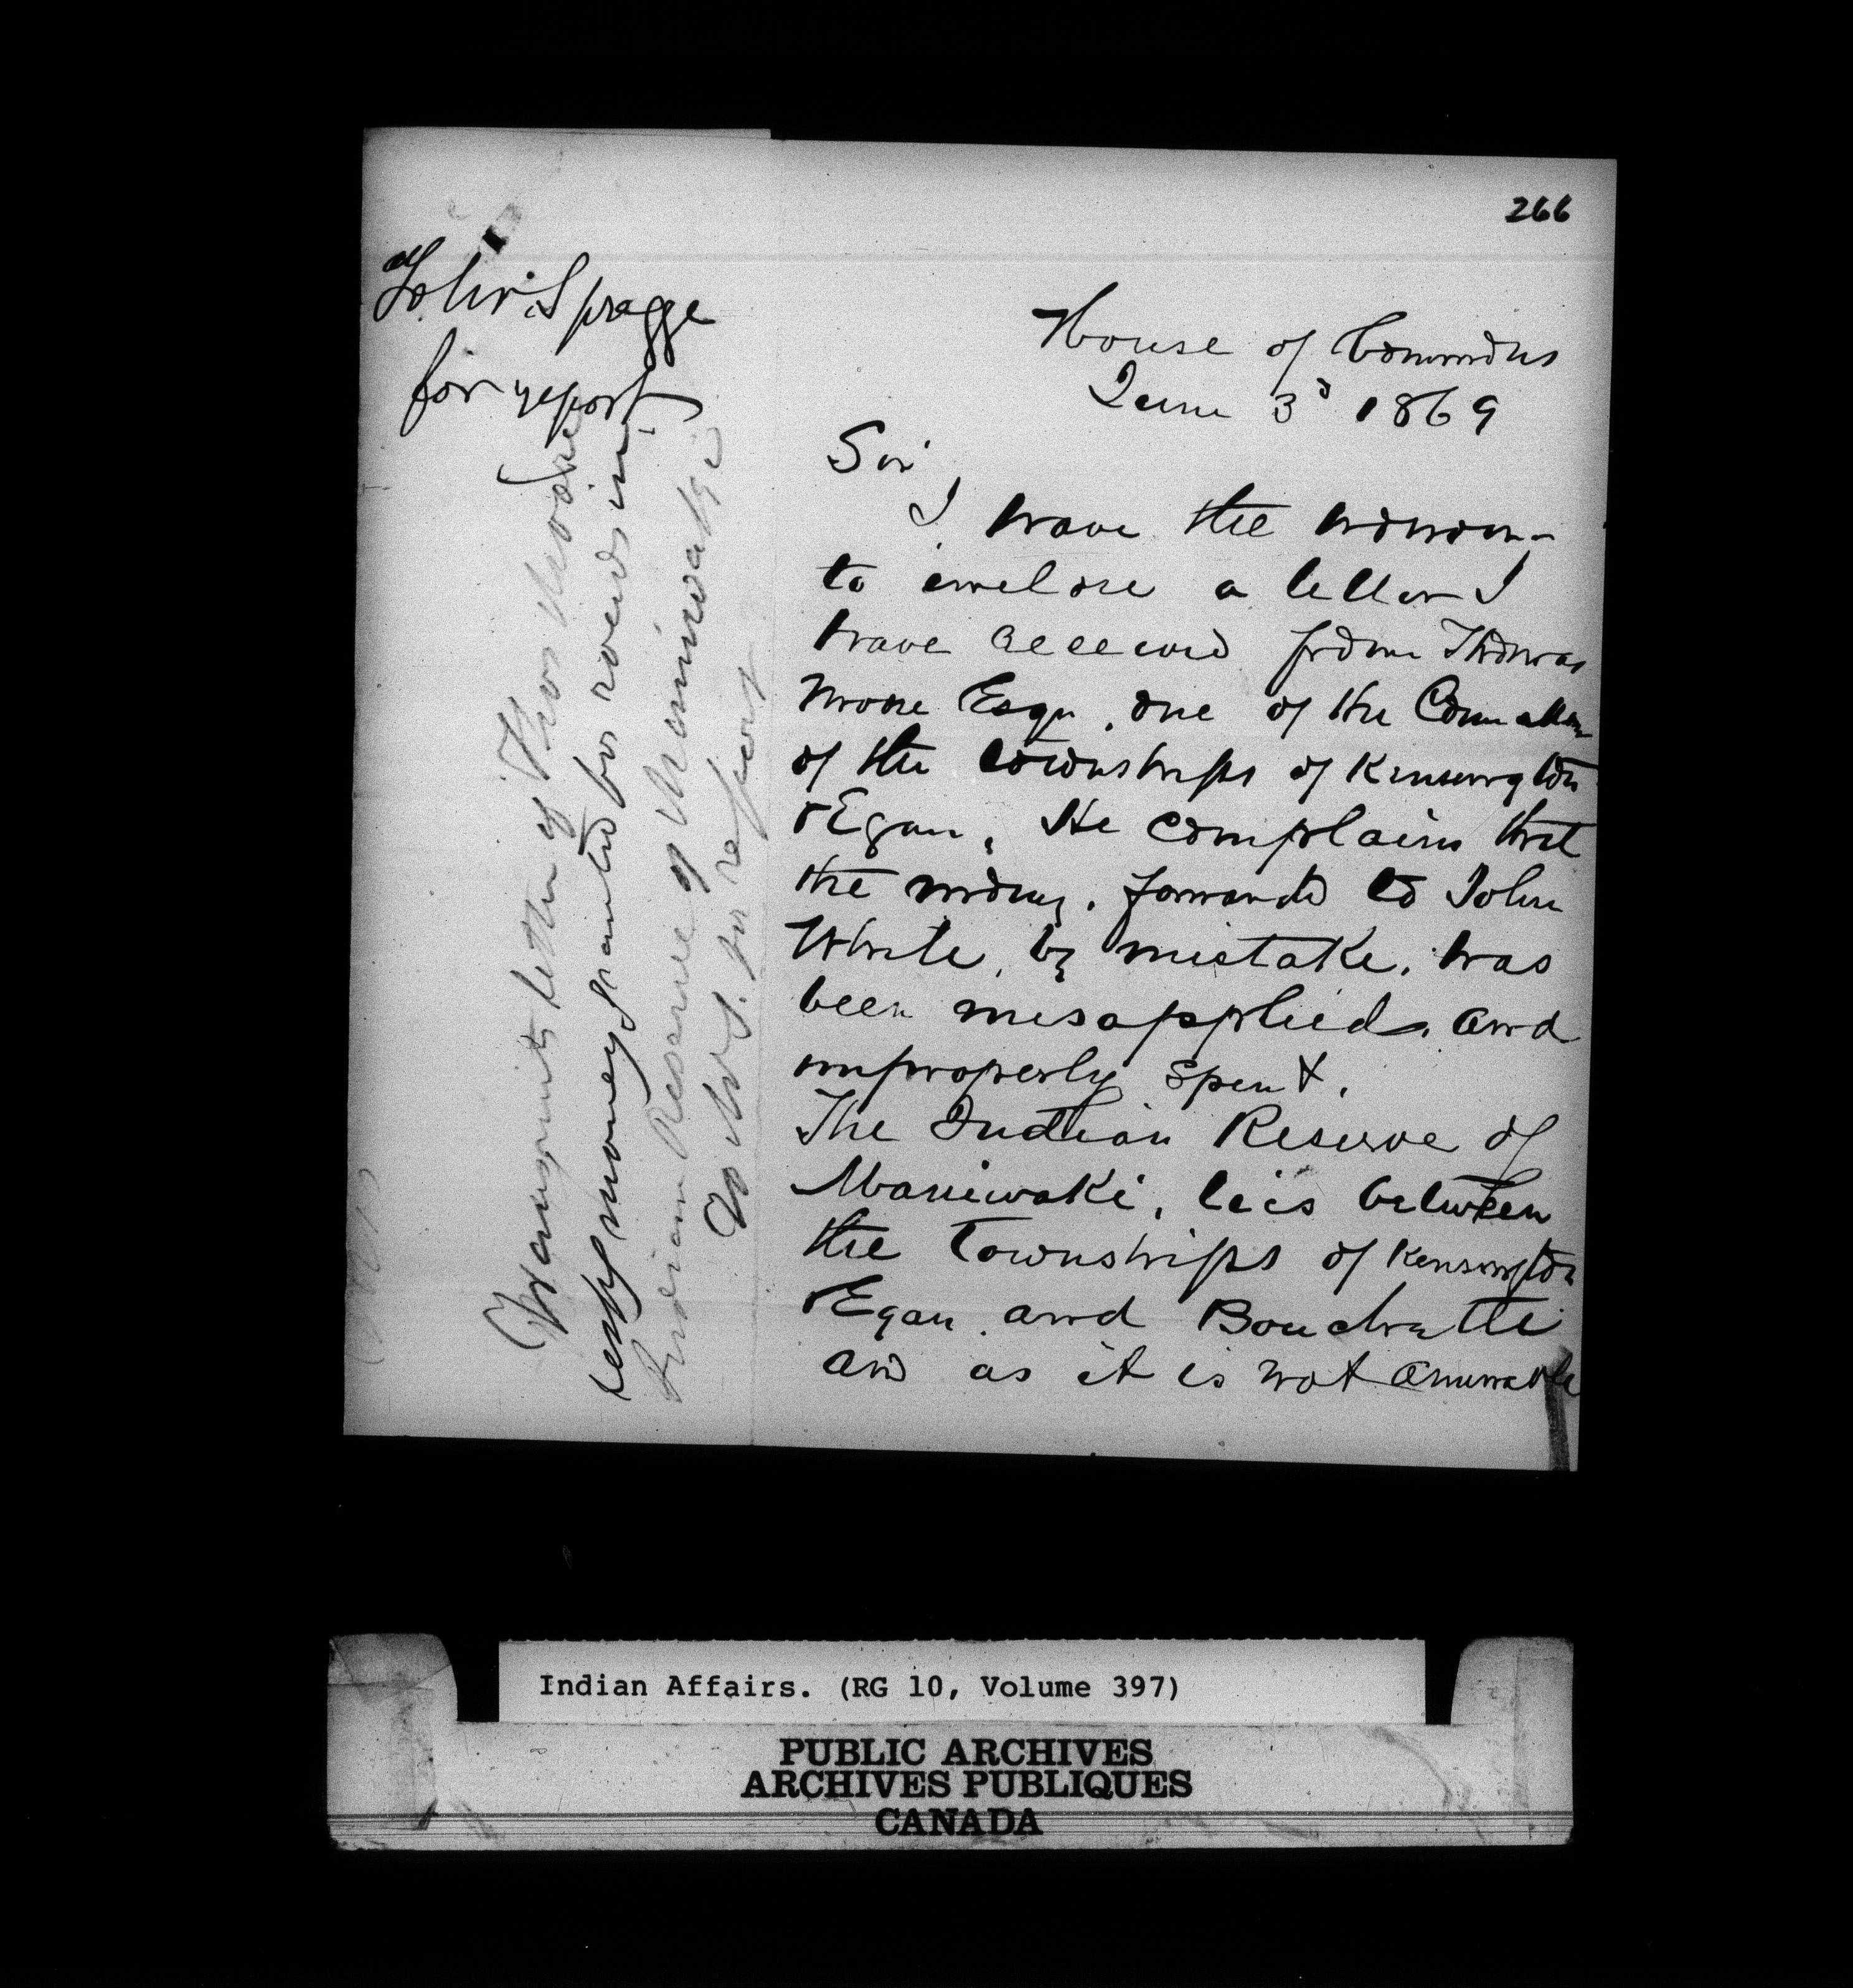 266
John Spragge
for report
Transmits letter of Thos Moore
respg money granted for roads in
Indian Reserve of Maniwaki
To W.S. for report
House of Commons
June 3d 1869
Sir
I have the honour
to enclose a letter I
have received from Thomas
Moore Esqr. one of the
of the townships of Kensington
& Egan. He complains that
the money, forwarded to John
White, by mistake, has
been misapplied, and
improperly spent.
The Indian Reserve of
Maniwaki, lies between
the Townships of Kensington
& Egan and Bouchette
and as it is not amenable
Indian Affairs. (RG 10, Volume 397)
PUBLIC ARCHIVES
ARCHIVES PUBLIQUES
CANADA